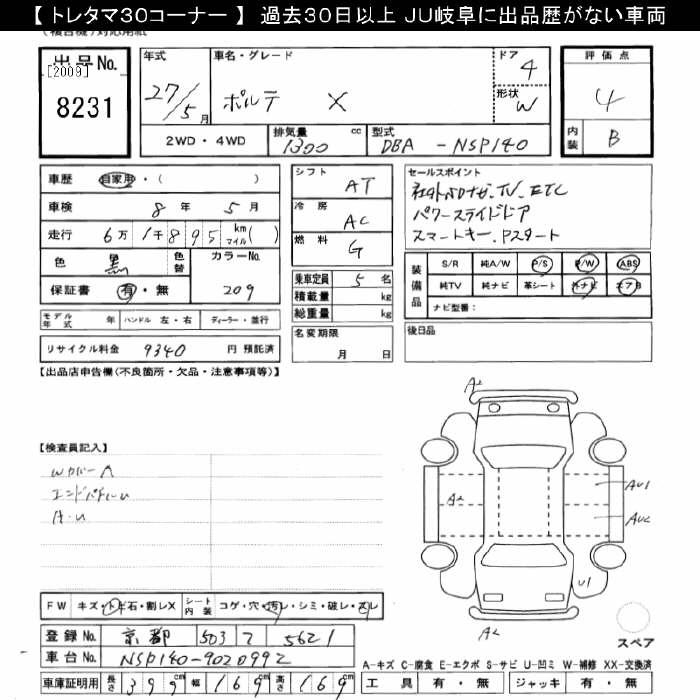 【 トレタマ30コーナー 】 過去30日以上 JU岐阜に出品歴がない車両
出品No.
[2009]
8231
年式
27/5月
車名・グレード
ポルテ X
ドア
4
形状
W
2WD・4WD
排気量 1300 cc
型式 DBA - NSP140
評価点
4
内装 B
車歴 自家用・( )
車検 8年 5月
走行 6万1千895 km マイル( )
色 黒 色替
カラーNo. 209
保証書 有・無
モデル年式 年 ハンドル 左・右 ディーラー・並行
リサイクル料金 9340 円 預託済
シフト AT
冷房 AC
燃料 G
乗車定員 5 名
積載量 kg
総重量 kg
名変期限
月 日
セールスポイント
社外SDナビ、TV、ETC
パワースライドドア
スマートキー、Pスタート
装備品
S/R 純A/W P/S P/W ABS
純TV 純ナビ 革シート 外ナビ エアB
ナビ型番:
後日品
【出品店申告欄(不良箇所・欠品・注意事項等)】
【検査員記入】
Wカバー A
エンドパネルU
A・U
A2
A2
AU1
AU2
U1
A2
スペア
FW キズ・トビ石・割レX シート内装 コゲ・穴・汚レ・シミ・破レ・スレ
登録No. 京都 503 ワ 5621
車台No. NSP140-9020992
車庫証明用 長さ 399cm 幅 169cm 高さ 169cm
A-キズ C-腐食 E-エクボ S-サビ U-凹ミ W-補修 XX-交換済
工具 有・無 ジャッキ 有・無